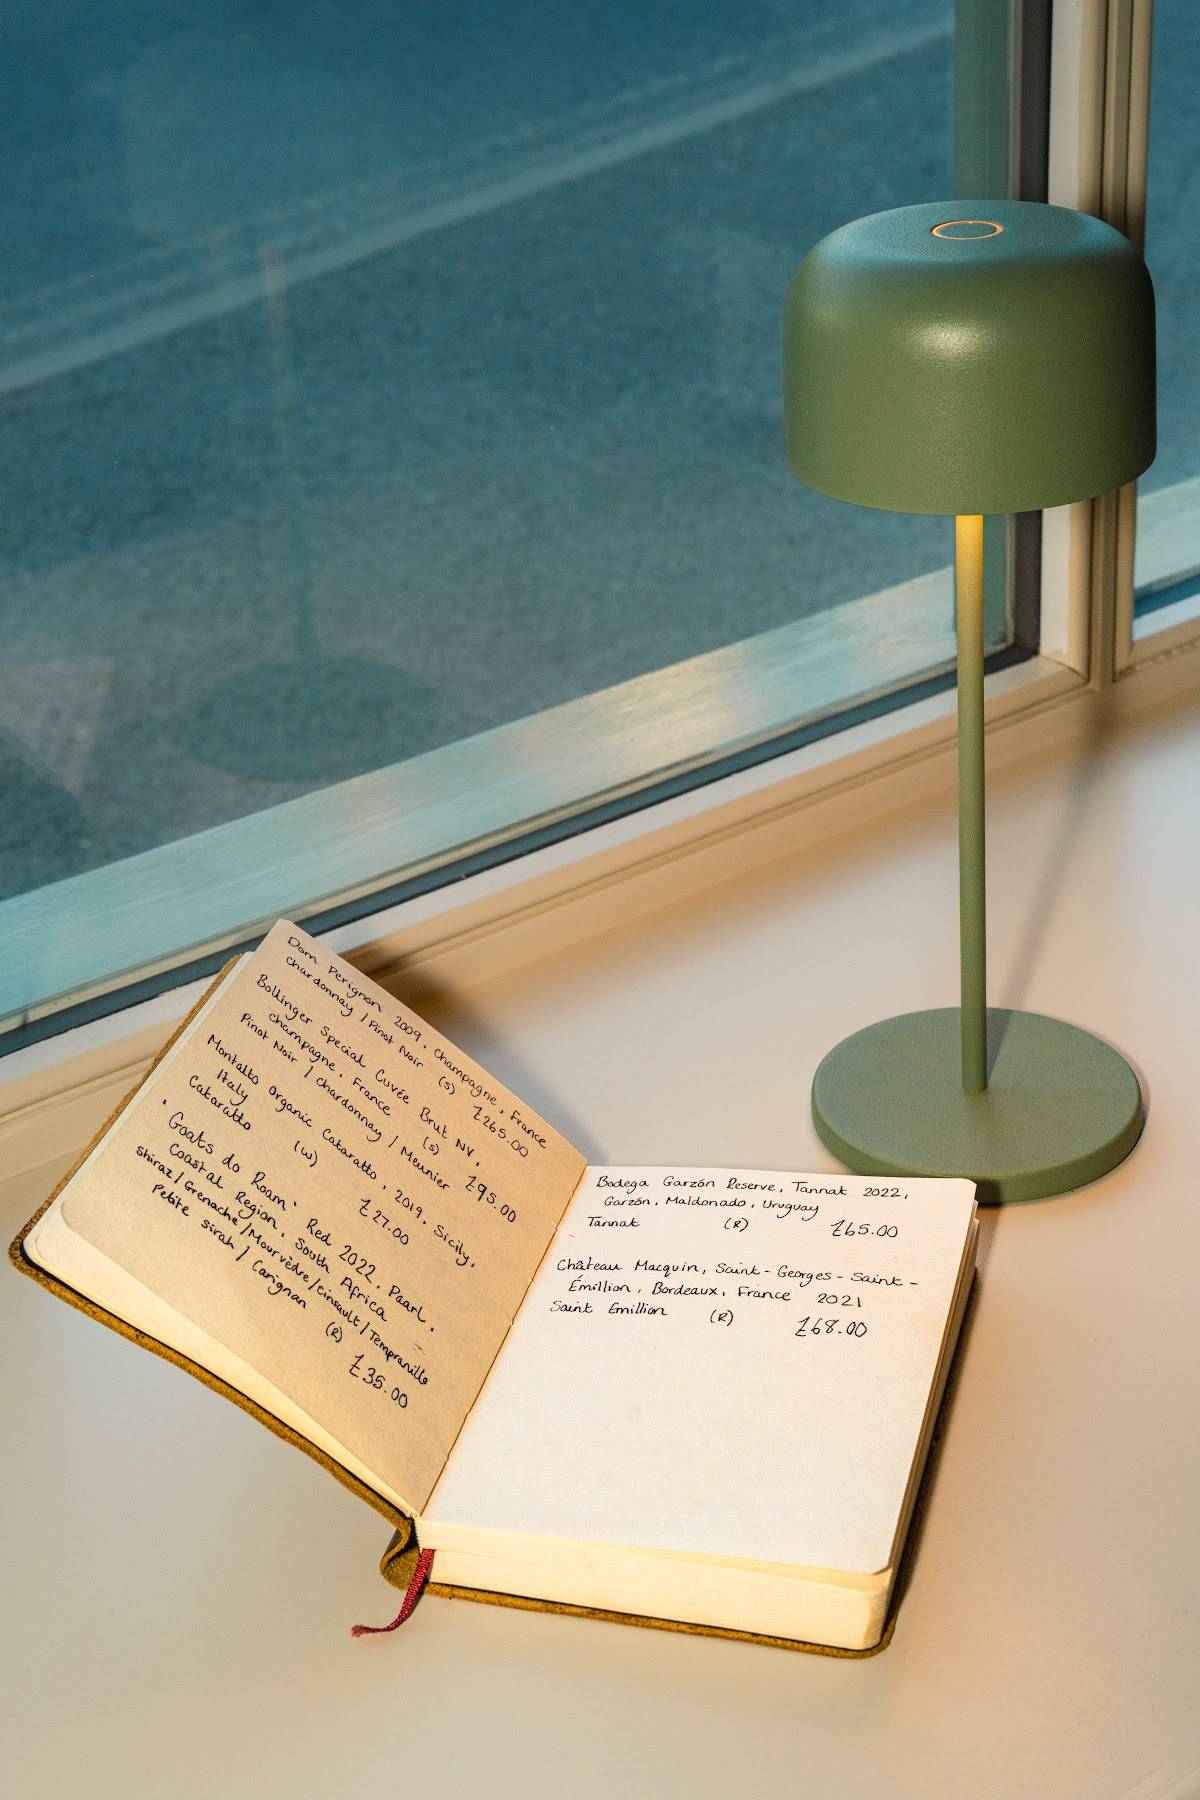 Dom Perignon 2009, Champagne, France
Chardonnay / Pinot Noir (S) £265.00
Bollinger Special Cuvée Brut NV,
Champagne, France
Pinot Noir / Chardonnay / Meunier (S) £95.00
Montalto Organic Cataratto, 2019, Sicily,
Italy
Cataratto (W) £27.00
Goats do Roam. Red 2022, Paarl,
Coastal Region, South Africa
Shiraz / Grenache / Mourvèdre / Cinsault / Tempranillo
Petite Sirah / Carignan (R)
£35.00
Bodega Garzón Reserve, Tannat 2022,
Garzón, Maldonado, Uruguay
Tannat (R) £65.00
Château Macquin, Saint-Georges-Saint-
Émillion, Bordeaux, France 2021
Saint Emillion (R) £68.00